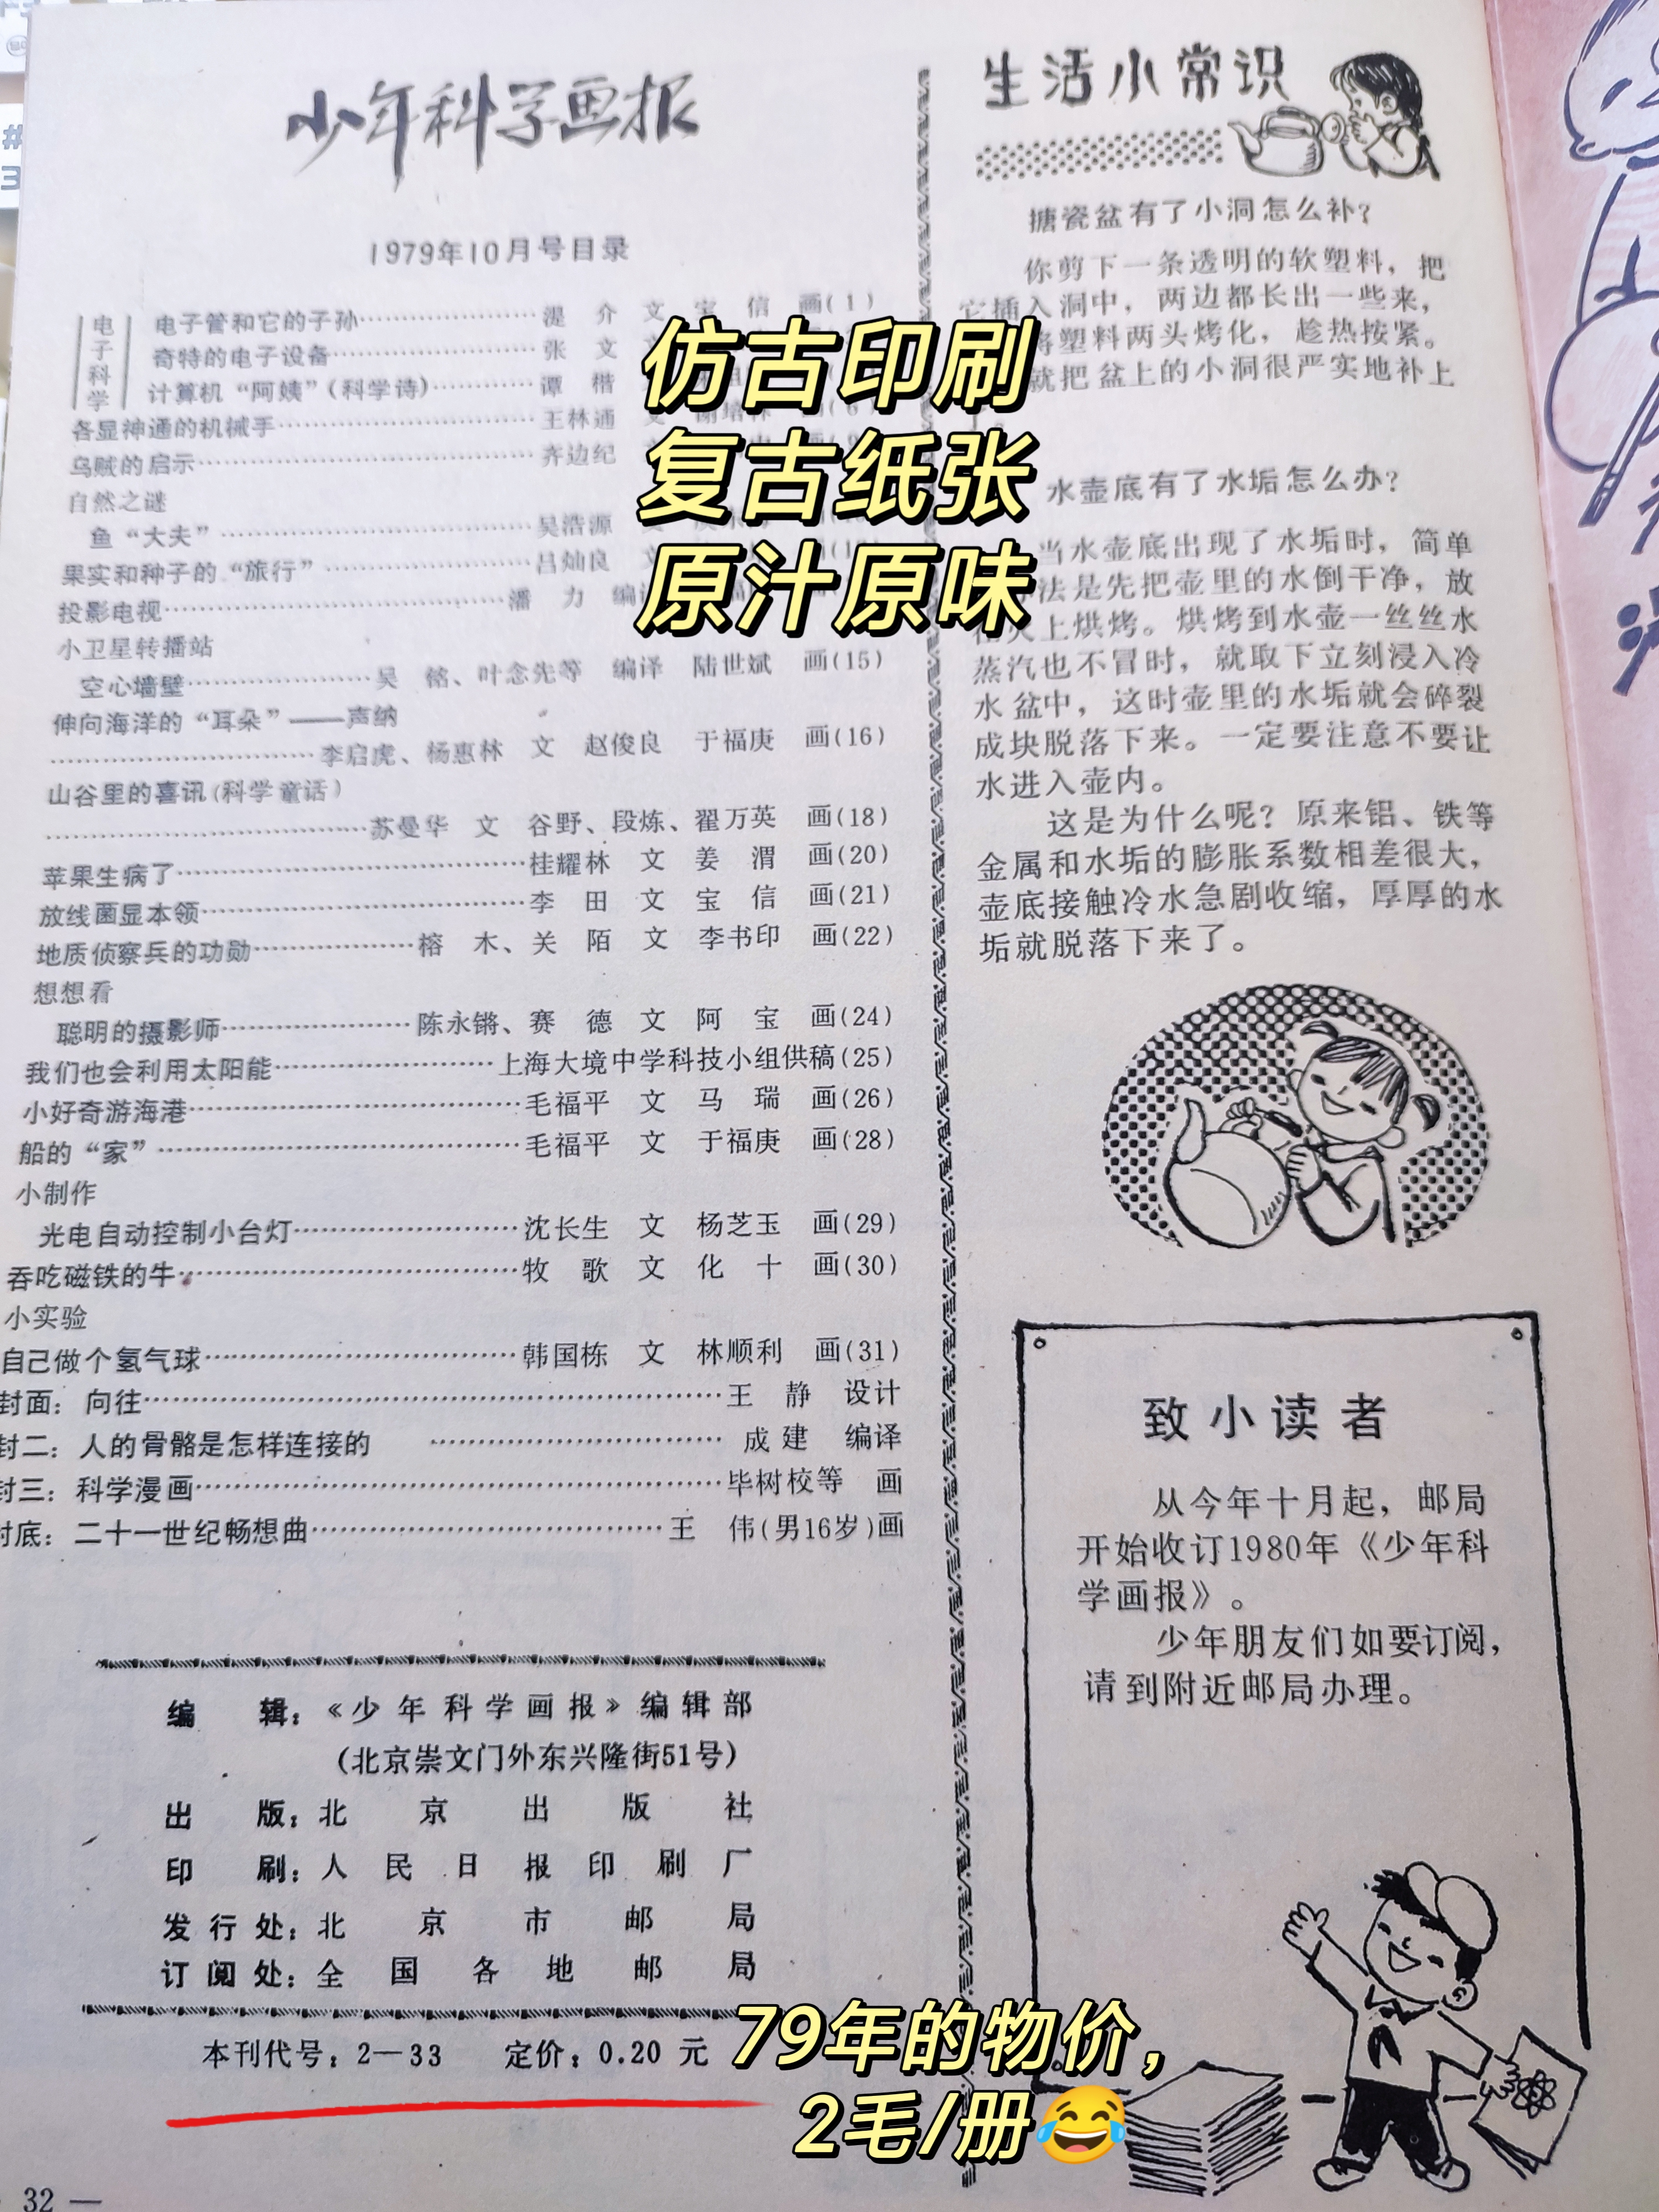 少年科学画报
1979年10月号目录
电子科学
电子管和它的子孙……湜 介 文 宝 信 画(1)
奇特的电子设备……张 文
计算机“阿姨”(科学诗)……谭 楷
各显神通的机械手……王林通
乌贼的启示……齐边纪
自然之谜
鱼“大夫”……吴浩源
果实和种子的“旅行”……吕灿良 文
投影电视……潘 力 编
小卫星转播站
空心墙壁……吴 铭、叶念先等 编译 陆世斌 画(15)
伸向海洋的“耳朵”——声纳
……李启虎、杨惠林 文 赵俊良 于福庚 画(16)
山谷里的喜讯(科学童话)
……苏曼华 文 谷野、段炼、翟万英 画(18)
苹果生病了……桂耀林 文 姜 渭 画(20)
放线菌显本领……李 田 文 宝 信 画(21)
地质侦察兵的功勋……榕 木、关 陌 文 李书印 画(22)
想想看
聪明的摄影师……陈永锵、赛 德 文 阿 宝 画(24)
我们也会利用太阳能……上海大境中学科技小组供稿(25)
小好奇游海港……毛福平 文 马 瑞 画(26)
船的“家”……毛福平 文 于福庚 画(28)
小制作
光电自动控制小台灯……沈长生 文 杨芝玉 画(29)
吞吃磁铁的牛……牧 歌 文 化 十 画(30)
小实验
自己做个氢气球……韩国栋 文 林顺利 画(31)
封面：向往……王 静 设计
封二：人的骨骼是怎样连接的……成 建 编译
封三：科学漫画……毕树校等 画
封底：二十一世纪畅想曲……王 伟(男16岁)画
编 辑：《少年科学画报》编辑部
(北京崇文门外东兴隆街51号)
出 版：北京出版社
印 刷：人民日报印刷厂
发行处：北京市邮局
订阅处：全国各地邮局
本刊代号：2—33 定价：0.20 元
32 —
生活小常识
搪瓷盆有了小洞怎么补？
你剪下一条透明的软塑料，把
它插入洞中，两边都长出一些来，
将塑料两头烤化，趁热按紧。
就把盆上的小洞很严实地补上
水壶底有了水垢怎么办？
当水壶底出现了水垢时，简单
法是先把壶里的水倒干净，放
火上烘烤。烘烤到水壶一丝丝水
蒸汽也不冒时，就取下立刻浸入冷
水盆中，这时壶里的水垢就会碎裂
成块脱落下来。一定要注意不要让
水进入壶内。
这是为什么呢？原来铝、铁等
金属和水垢的膨胀系数相差很大，
壶底接触冷水急剧收缩，厚厚的水
垢就脱落下来了。
致小读者
从今年十月起，邮局
开始收订1980年《少年科
学画报》。
少年朋友们如要订阅，
请到附近邮局办理。
仿古印刷
复古纸张
原汁原味
79年的物价，
2毛/册😂